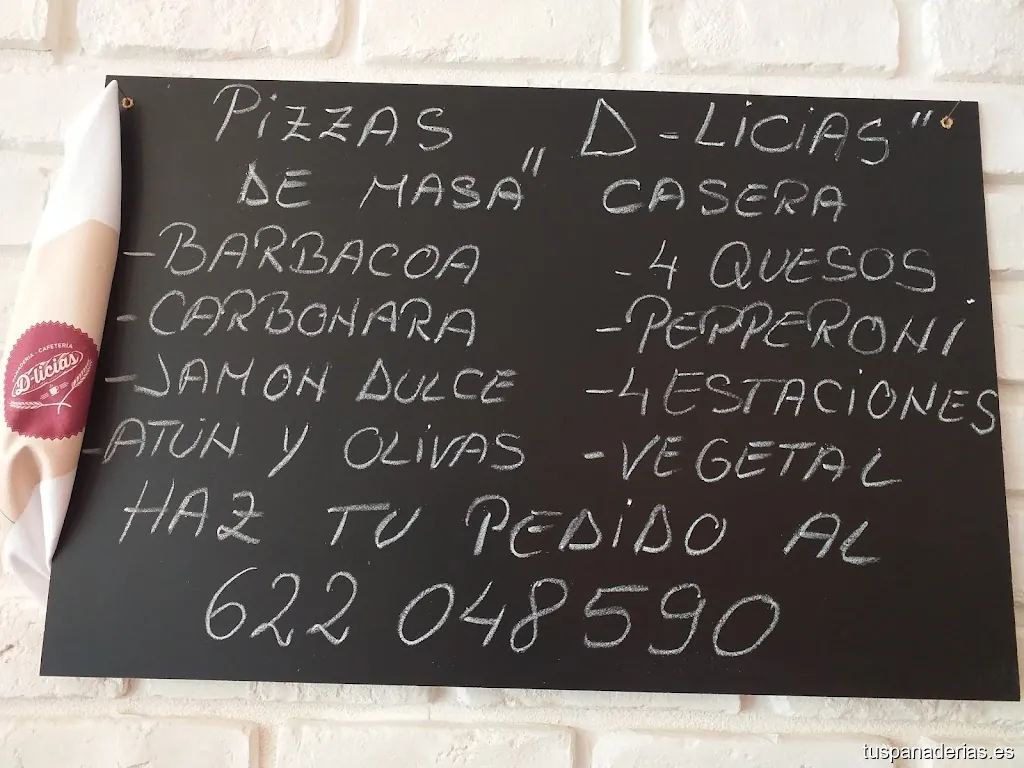 PiZZAS D-LiCiAS"
DE MASA" CASERA
-BARBACOA
-CARBONARA
-JAMON DULCE
-ATÚN Y OLIVAS
-4 QUESOS
-PEPPERONI
-4 ESTACIONES
-VEGETAL
HAZ TU PEDIDO AL
622 048590
CAFETERÍA
D-licias
tuspanaderias.es